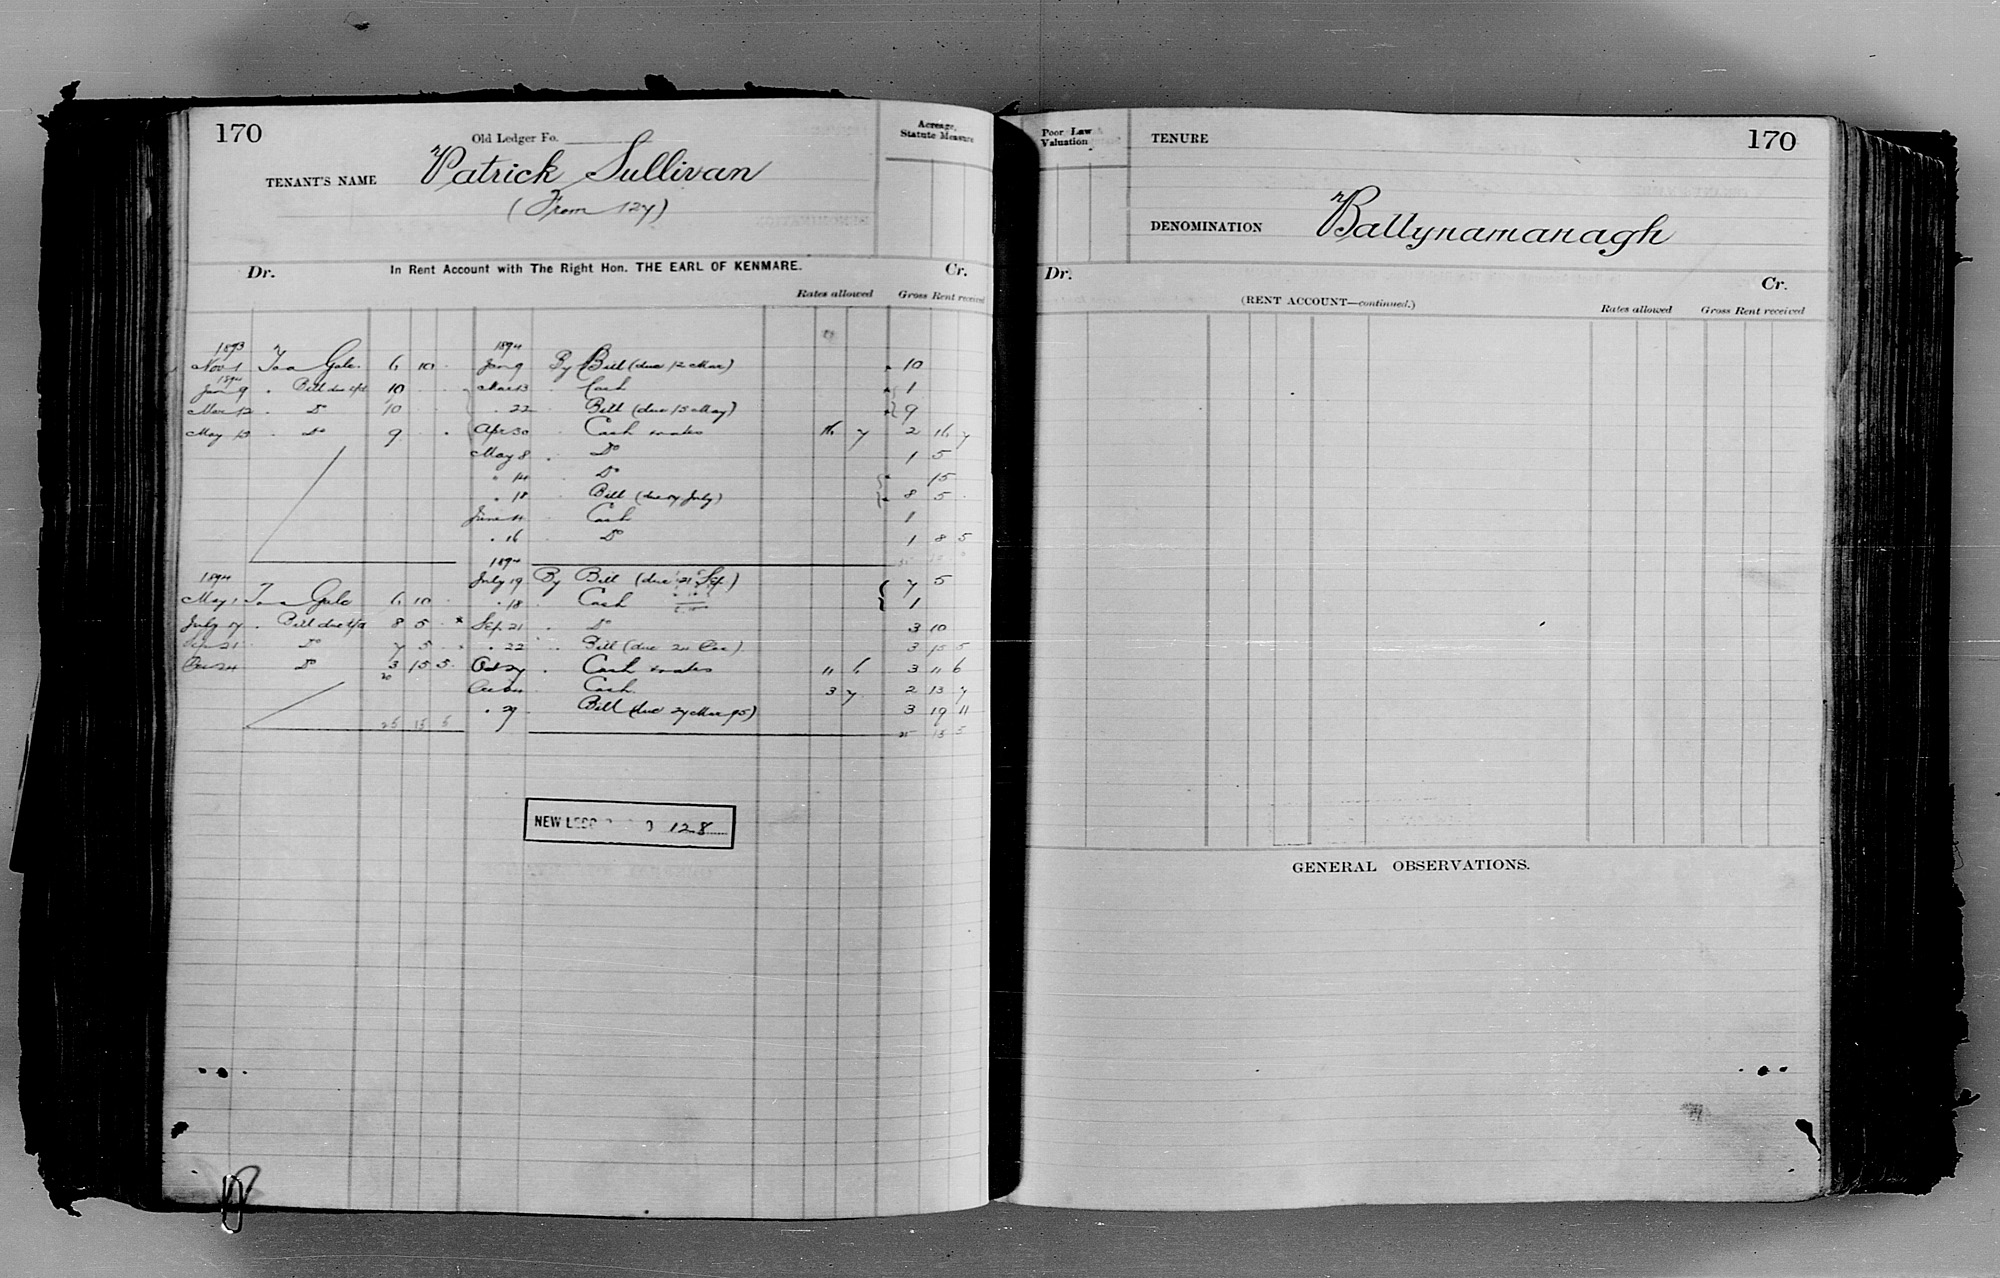 170
Old Ledger Fo.
Acreage, Statute Measure
TENANT'S NAME Patrick Sullivan
(From 127)
Dr. In Rent Account with The Right Hon. THE EARL OF KENMARE. Cr.
Rates allowed Gross Rent received
1893 1894
Nov 1 To a Gale 6 10 Jan 9 By Bill (due 12 Mar) 10
1894
Jan 9 . Bill due 10 Mar 13 Cash 1
Mar 12 . Do 10 . 22 Bill (due 15 May) 9
May 15 . Do 9 Apr 30 Cash & rates 16 7 2 16 7
May 8 . Do 1 5
" 14 Do 15
. 18 Bill (due 17 July) 8 5
June 4 Cash 1
. 16 Do 1 8 5
1894
1894 July 19 By Bill (due 21 Sep) 7 5
May 1 To a Gale 6 10 . 18 . Cash 1
July 17 . Bill due 8 5 Sep 21 . Do 3 10
Sep 21 Do 7 5 . 22 Bill (due 24 Dec) 3 15 5
Dec 24 Do 3 15 5 Oct 27 . Cash & rates 11 6 3 11 6
Cash 3 7 2 13 7
. 29 Bill (due 27 Mar 95) 3 19 11
25 15 5 25 15 5
NEW 128
Poor Law Valuation
TENURE
170
DENOMINATION Ballynamanagh
Dr. Cr.
(RENT ACCOUNT—continued.)
Rates allowed Gross Rent received
GENERAL OBSERVATIONS.